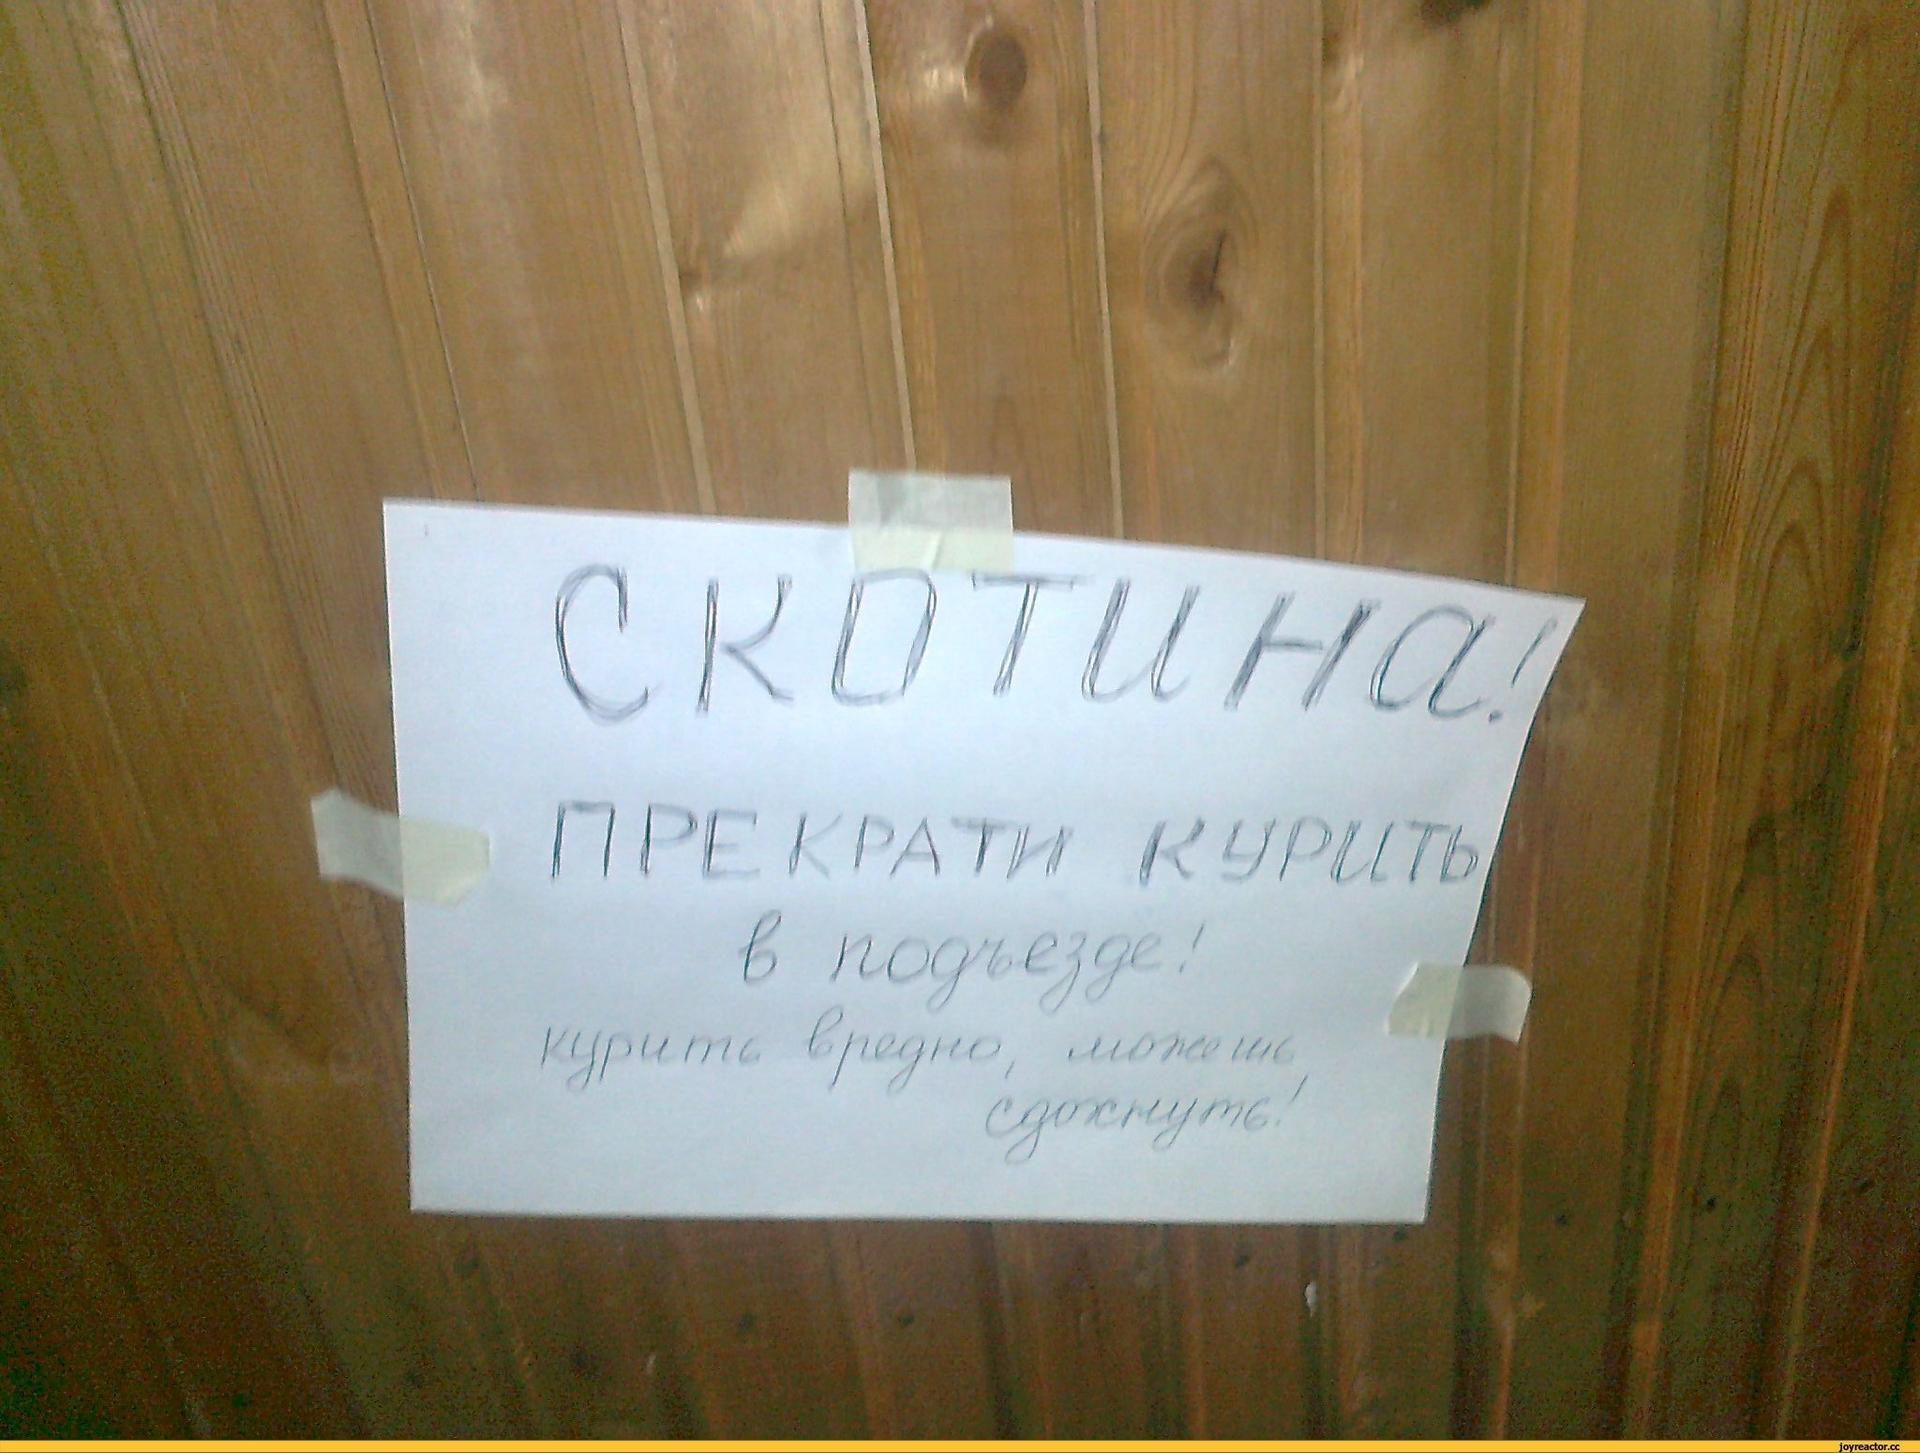 СКОТИНА!
ПРЕКРАТИ КУРИТЬ
в подъезде!
курить вредно, можешь
сдохнуть!
joyreactor.cc